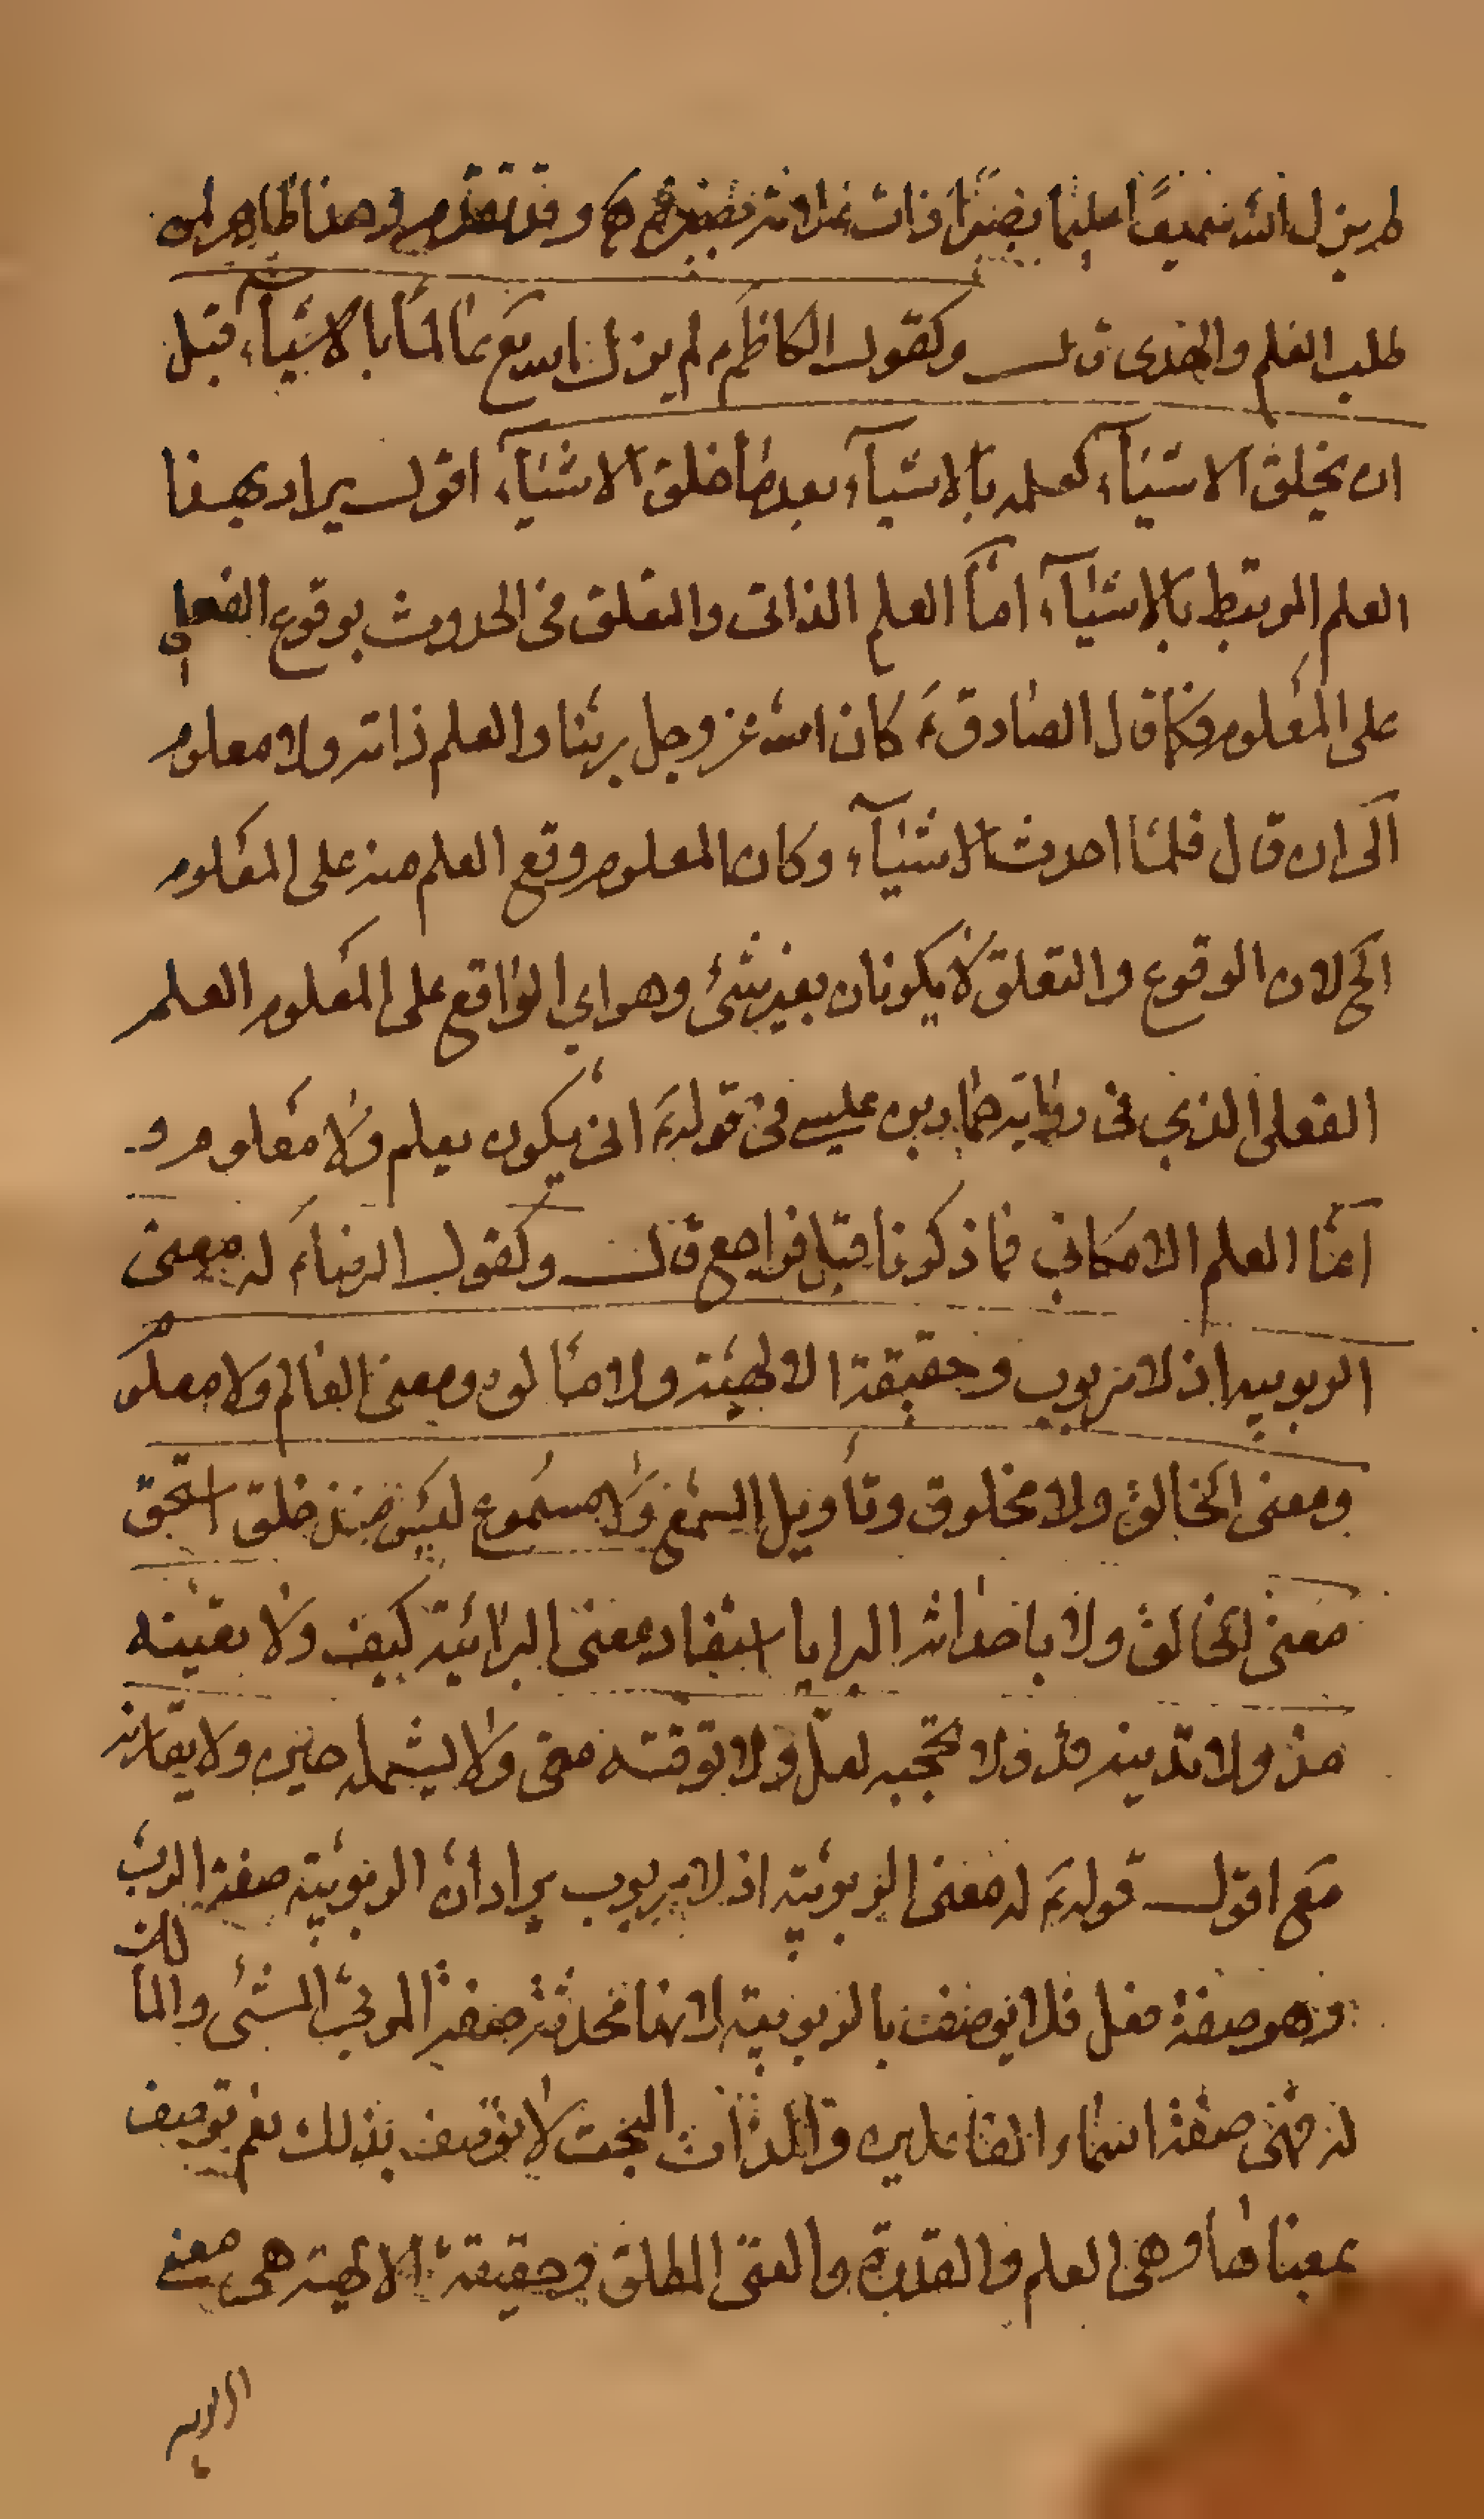 لم يزل الله سميعا عليما بصيرا ذات علامة سميعة بصيرة وقد تقدم وهذا ظاهر لمن
طلب العلم والهدى قال وكقول الكاظم ع لم يزل الله تع عالما بالاشياء قبل
ان يخلق الاشياء كعلمه بالاشياء بعد ما خلق الاشياء اقول يراد بهذا
العلم المرتبط بالاشياء امّا العلم الذاتى والتعلق فى الحدوث بوقوع الفعلي
على المعلوم وكما قال الصادق ع كان الله عز وجل ربنا والعلم ذاته ولا معلوم
الى ان قال فلما احدث الاشياء وكان المعلوم وقع العلم منه على المعلوم
الخ لان الوقوع والتعلق لا يكونان بغير شئ وهو اي الواقع على المعلوم العلم
الفعلى الذي فى رواية حماد بن عليسى فى قوله ع انى يكون يعلم ولا معلوم و
امّا العلم الامكاني فما ذكرنا قبل فراجع قال وكقول الرضا ع له معنى
الربوبية اذ لا مربوب وحقيقة الالهية ولا مألوه ومعنى العالم ولا معلوم
ومعنى الخالق ولا مخلوق وتأويل السمع ولا مسموع ليس منذ خلق استحق
معنى الخالق ولا باحداثه البرايا استفاد معنى البرائية كيف ولا يغيبه
مذ ولا تدنيه قد ولا تحجبه لعل ولا توقته متى ولا يشمله حين ولا يقارنه
مع اقول قوله ع له معنى الربوبية اذ لا مربوب يراد ان الربوبية صفة الربّ
وهو صفة فعل فلا يوصف بالربوبية لانها محدثة صفة المربي الشئ والمالك
له فهى صفة اسماء الفاعلين والذات البحت لا توصف بذلك نعم توصف
بمعناها وهى العلم والقدرة والغنى المطلق وحقيقة الالهية هى معنى